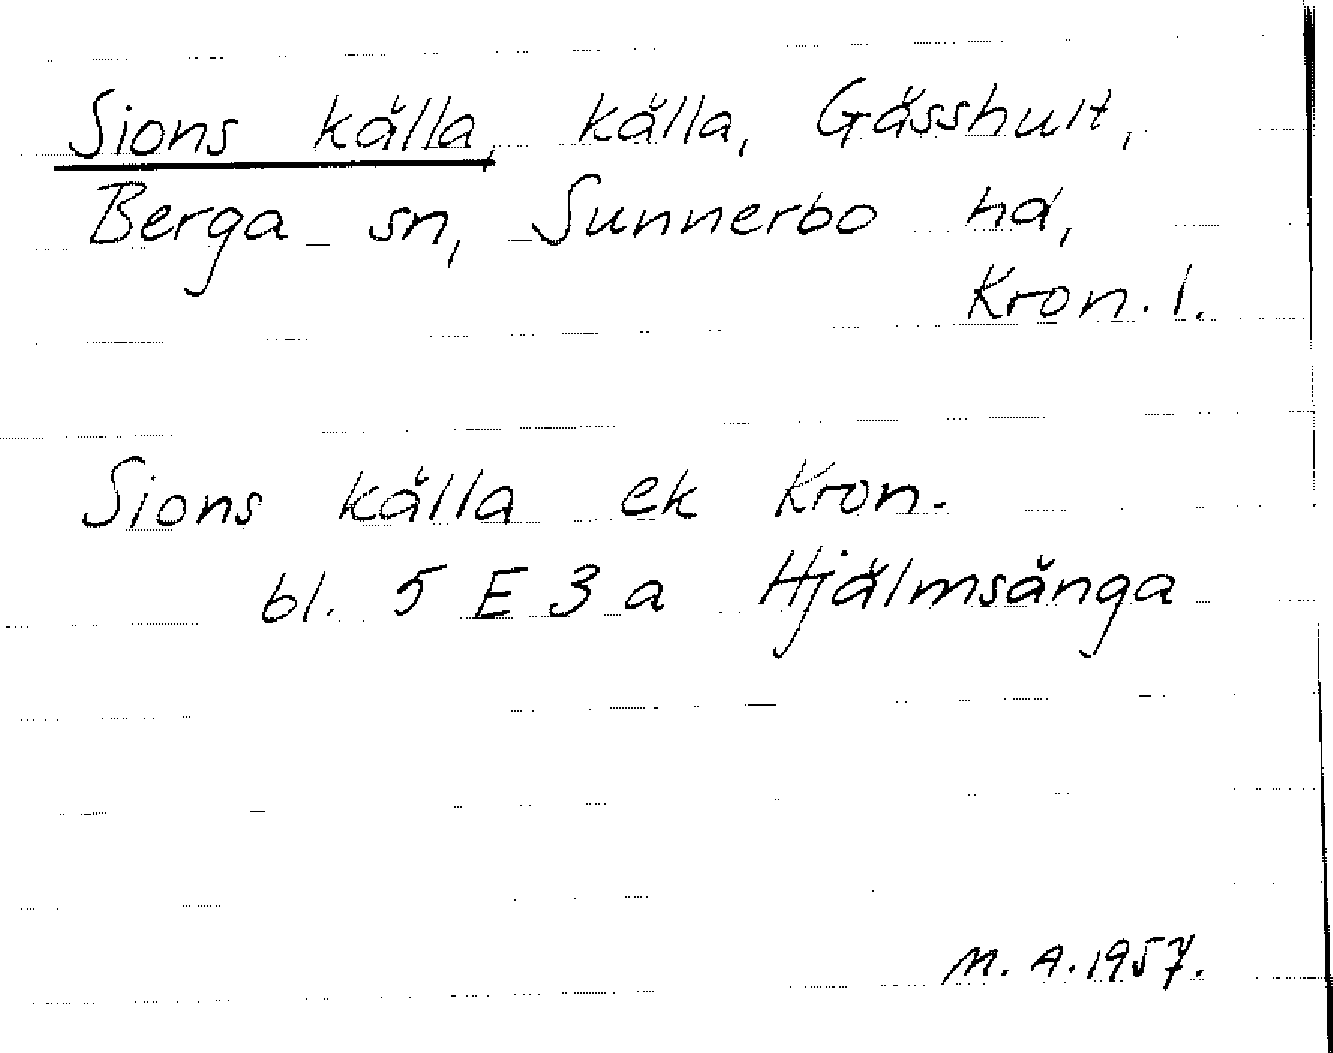 Sions källa, källa, Gässhult,
Berga sn, Sunnerbo hd,
Kron. l.
Sions källa ek Kron.
bl. 5 E 3 a Hjälmsänga
M. A. 1957.